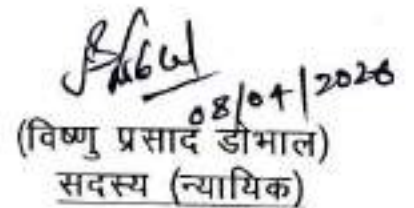 08/04/2026
(विष्णु प्रसाद डोभाल)
सदस्य (न्यायिक)